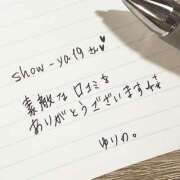 show-ya19 さん♥♥
素敵な口コミを
ありがとうございます
ゆりの。